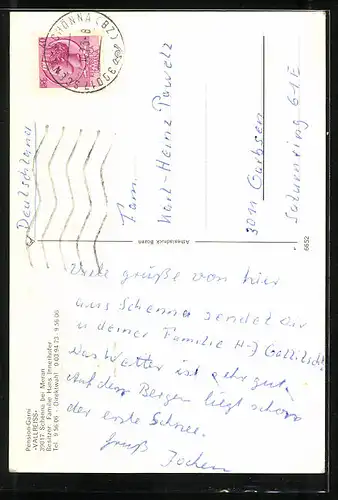 Pension-Garni
«VALLREISS»
39017 Schenna bei Meran
Besitzer: Familie Hans Innerhofer
Tel. 9 56 06 - Direktwahl 0 03 94 73 - 9 56 06
Viele grüße von hier
aus Schenna sendet dir
u deiner Familie H-J
Das Wetter ist sehr gut
Auf den Bergen liegt schon
der erste Schnee.
Gruß Jochen
Athesiadruck Bozen
6652
SCHENNA (BZ)
39017
Deutschland
Fam.
Karl-Heinz Pawelz
3011 Garbsen
Saturnring 61E